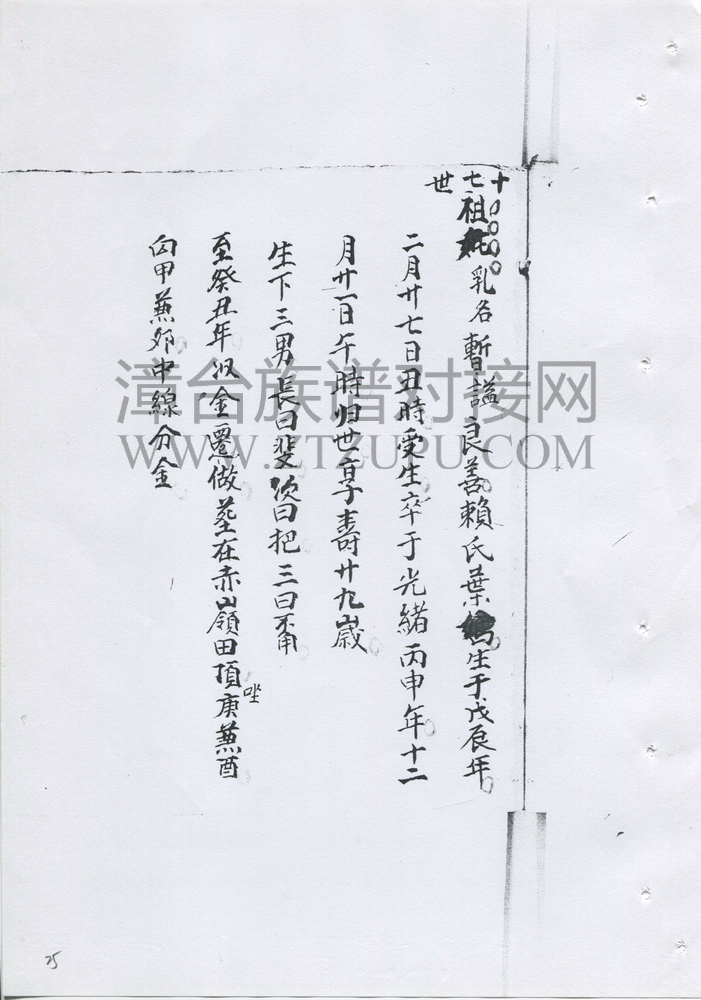 十七世
祖妣乳名暫謚良善賴氏葉生于戊辰年
二月廿七日丑時受生卒于光緒丙申年十二
月廿一日午時归世享壽廿九歲
生下三男長曰斐次曰把三曰
至癸丑年収金遷做墓在赤山嶺田頂坐庚兼酉
向甲兼卯中線分金
漳台族谱对接网
WWW.ZTZUPU.COM
25